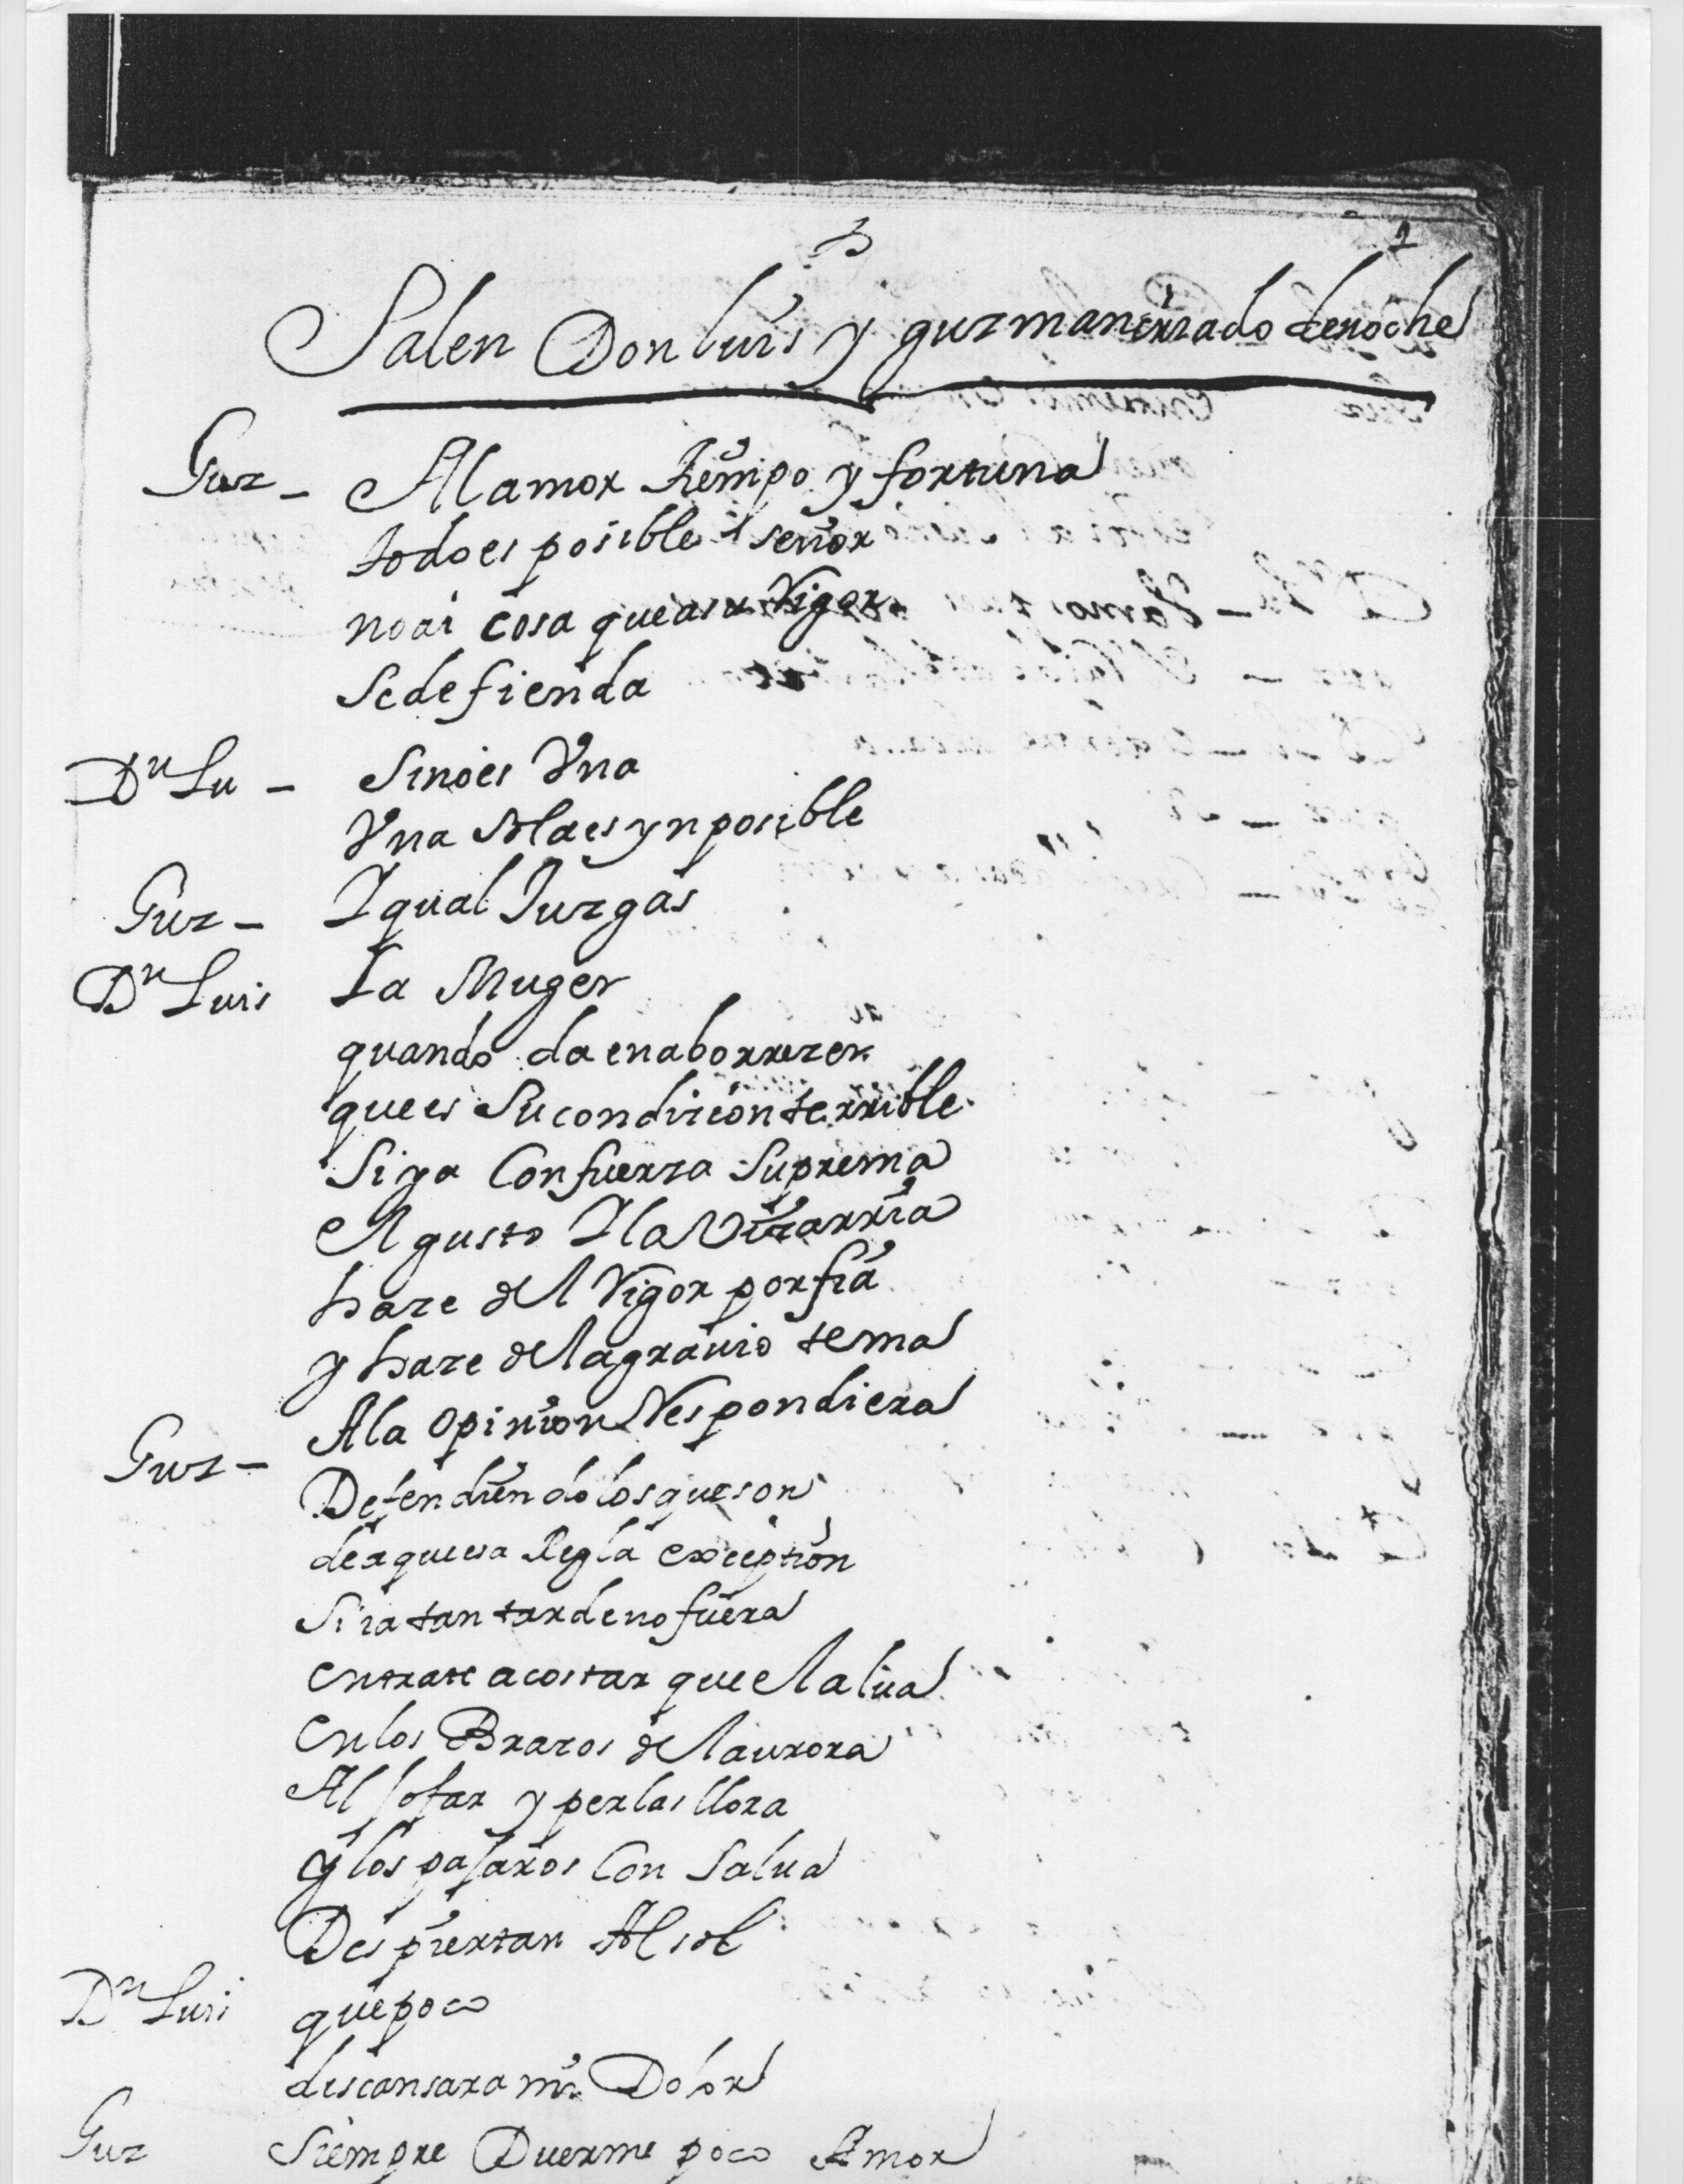 1
Salen Don luis y guzman criado de noche
Guz - Al amor tiempo y fortuna
todo es posible señor
no ai cosa que a su Rigor
se defienda
Dn Lu - Sino es Vna
Vna sola es ynposible
Guz - Y qual Juzgas
Dn Luis La Muger
quando da en aborrezer
que es su condicion terrible
Si ya Con fuerza Suprema
el gusto Y la Vizarria
haze del Rigor porfia
y haze del agrauio tema
Guz - A la opinion Respondiera
Defendiendo los que son
de aquesa Regla exception
Si ia tan tarde no fuera
entrate acostar que el alua
en los Brazos del aurora
Aljofar y perlas llora
y los pajaros Con Salua
Despiertan Al sol
Dn Luis que poco
descansara mi Dolor
Guz Siempre Duerme poco Amor